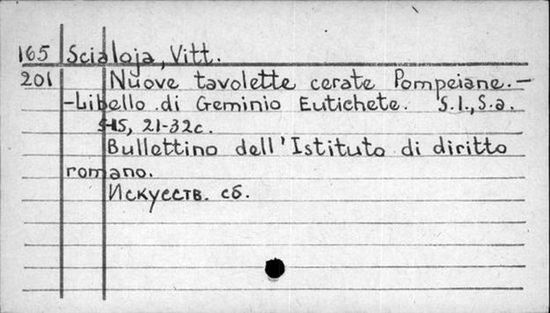 165 Scialoja, Vitt.
201 Nuove tavolette cerate Pompeiane.-
-Libello di Geminio Eutichete. S.l., S.a.
5-15, 21-32c.
Bullettino dell'Istituto di diritto
romano.
Искусств. сб.